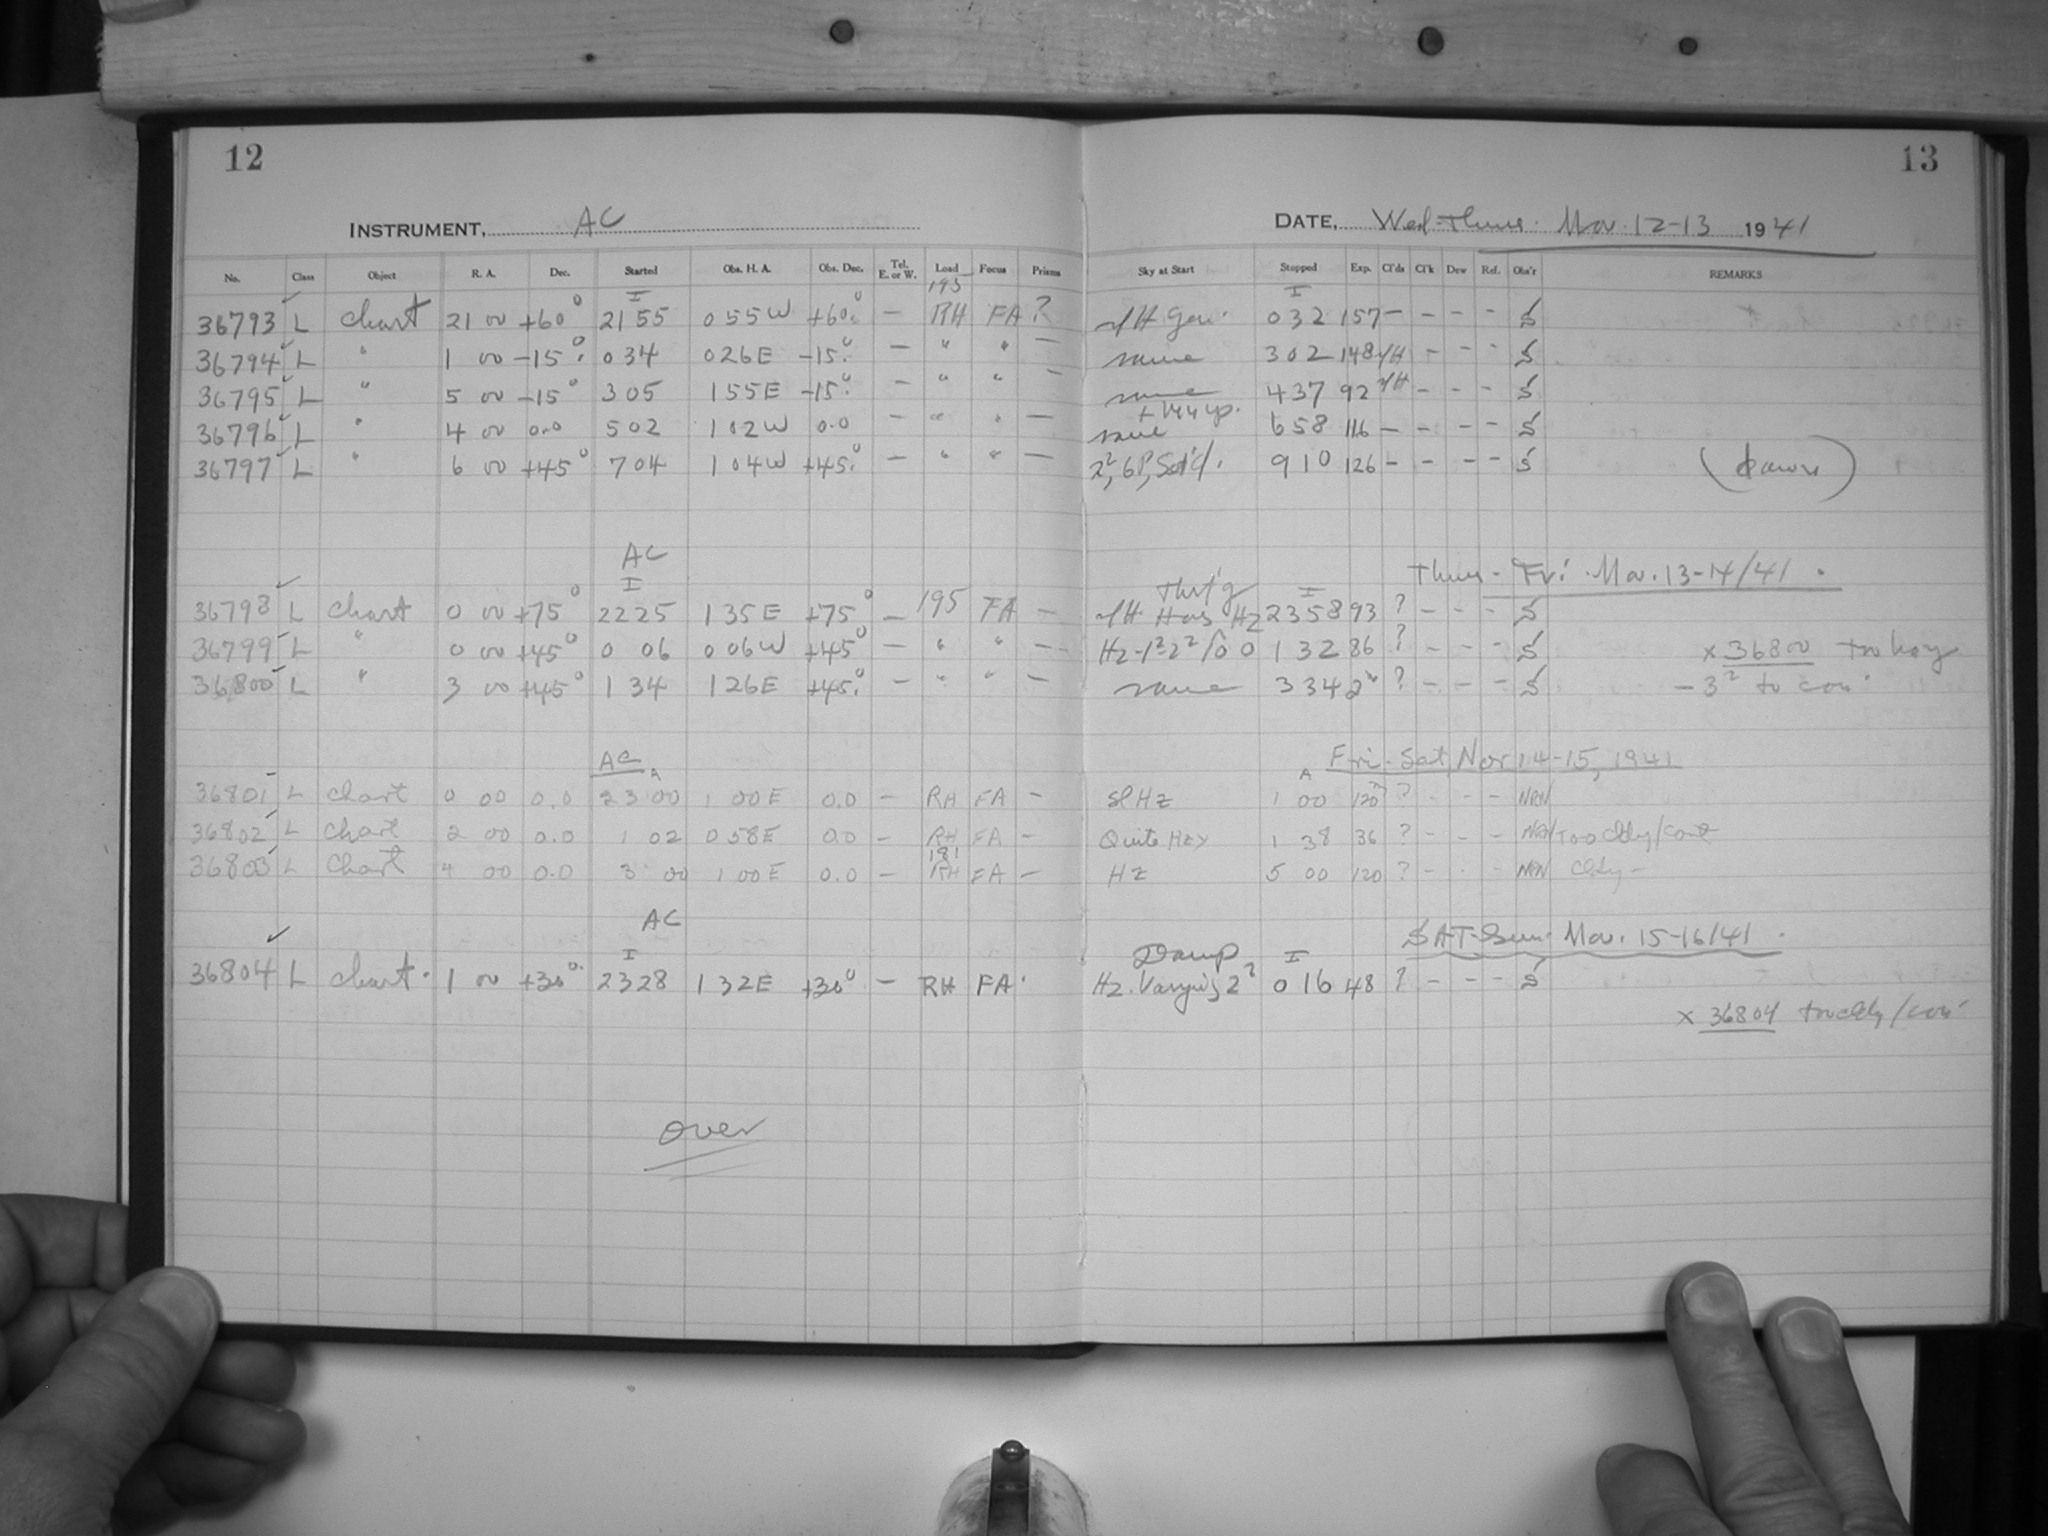 12
13
INSTRUMENT, AC
DATE, Wed-Thurs. Nov. 12-13 1941
No. Class Object R. A. Dec. Started Obs. H. A. Obs. Dec. Tel. E. or W. Load Focus Prisms Sky at Start Stopped Exp. Cl'ds Cl'k Dew Ref. Obs'r REMARKS
I 193 I
36793 L chart 21 00 +60° 2155 055W +60° — RH FA ? 032 157 — — — —
36794 L " 1 00 -15° 034 026E -15° — " " — same 302 148 — — —
36795 L " 5 00 -15° 305 155E -15° — " " — same 437 92 — — —
36796 L " 4 00 0.0 502 102W 0.0 — " " — same 658 116 — — — —
36797 L " 6 00 +45° 704 104W +45° — " " — 910 126 — — — — (dawn)
AC
I Thurs-Fri. Nov. 13-14/41.
36798 L chart 0 00 +75° 2225 135E +75° — 195 FA — 2358 93 ? — — —
36799 L " 0 00 +45° 0 06 006W +45° — " " — 132 86 ? — — — x 36800 too hazy
36800 L " 3 00 +45° 1 34 126E +45° — " " — same ? — — —
AC Fri-Sat, Nov 14-15, 1941
A A
36801 L chart 0 00 0.0 23 00 1 00E 0.0 — RH FA — Sl Hz 1 00 120 ? — — — NRN
36802 L chart 2 00 0.0 1 02 0 58E 0.0 — RH FA — Quite Hzy 1 38 36 ? — — — NRN Too cldy/cont
181
36803 L chart 4 00 0.0 3 00 1 00E 0.0 — RH FA — Hz 5 00 120 ? — — — NRN Cldy —
AC SAT-Sun. Nov. 15-16/41.
I Damp I
36804 L chart. 1 00 +30° 2328 132E +30° — RH FA. Hz. Varying 2² 016 48 ? — — —
x 36804 too cldy/con'
over